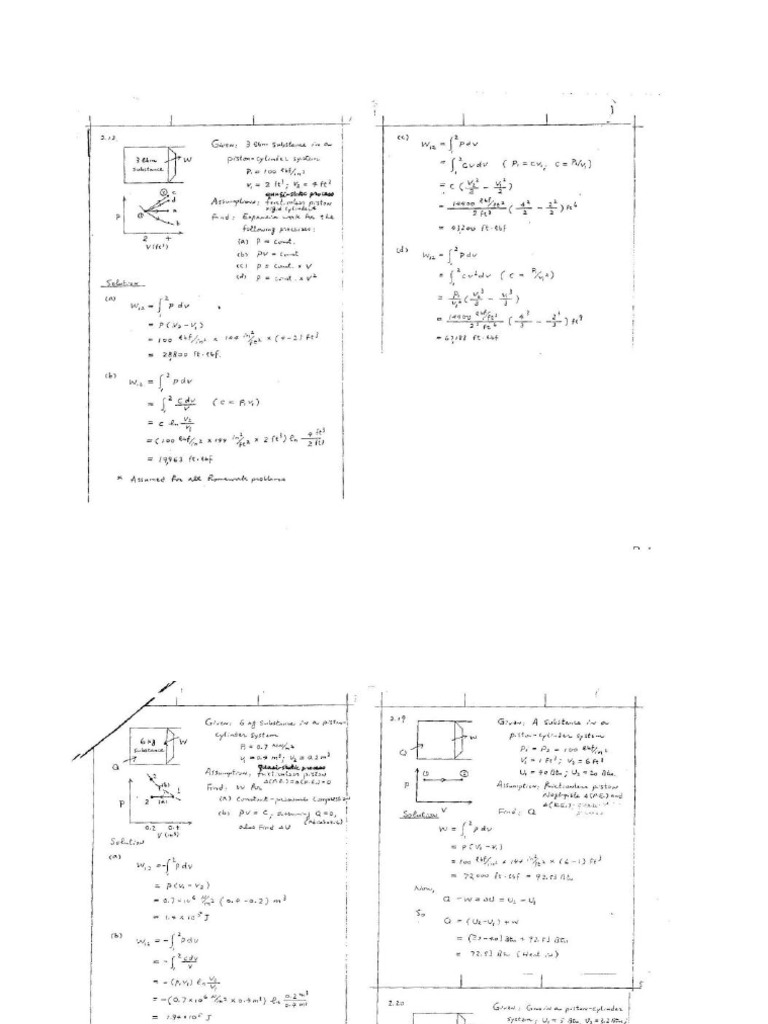 2.12
3 lbm
substance
W
P
2 4
V(ft³)
Given: 3 lbm substance in a
piston-cylinder system
P₁ = 100 lbf/in²
V₁ = 2 ft³; V₂ = 4 ft³
Assumptions: frictionless piston
rigid cylinder
Find: Expansion work for the
following processes:
(a) P = const.
(b) PV = const
(c) P = const. × V
(d) P = const. × V²
Solution
(a) W₁₂ = ∫₁² P dv
= P(V₂ - V₁)
= 100 lbf/in² × 144 in²/ft² × (4-2) ft³
= 28,800 ft·lbf.
(b) W₁₂ = ∫₁² P dv
= ∫₁² C dv/V (C = P₁V₁)
= C ln V₂/V₁
= (100 lbf/in² × 144 in²/ft² × 2 ft³) ln 4 ft³/2 ft³
= 19,963 ft·lbf
* Assumed for all homework problems
(c) W₁₂ = ∫₁² P dv
= ∫₁² CV dv (P₁ = CV₁, C = P₁/V₁)
= C (V₂²/2 - V₁²/2)
= 14400 lbf/ft²/2 ft³ (4²/2 - 2²/2) ft⁶
= 43200 ft·lbf
(d) W₁₂ = ∫₁² P dv
= ∫₁² CV² dv (C = P₁/V₁²)
= P₁/V₁² (V₂³/3 - V₁³/3)
= 14400 lbf/ft²/2² ft⁶ (4³/3 - 2³/3) ft⁹
= 67,188 ft·lbf
6 kg
substance
W
Q
P
2 (a) 1
0.2 0.4
V (m³)
Given: 6 kg substance in a piston
cylinder system
P₁ = 0.7 MN/m²
V₁ = 0.4 m³; V₂ = 0.2 m³
Assumption: frictionless piston
Δ(P.E.) = Δ(K.E.) = 0
Find: W for
(a) constant-pressure compression
(b) PV = C, assuming Q = 0,
also find ΔU (Adiabatic)
Solution
(a) W₁₂ = -∫₁² P dv
= P(V₁ - V₂)
= 0.7·10⁶ N/m² (0.4 - 0.2) m³
= 1.4 × 10⁵ J
(b) W₁₂ = -∫₁² P dv
= -∫₁² C dv/V
= -(P₁V₁) ln V₂/V₁
= -(0.7×10⁶ N/m² × 0.4 m³) ln 0.2 m³/0.4 m³
= 1.94 × 10⁵ J
2.19
Q
W
P
① ②
V
Given: A substance in a
piston-cylinder system
P₁ = P₂ = 100 lbf/in²
V₁ = 1 ft³; V₂ = 6 ft³
U₁ = 40 Btu; U₂ = 20 Btu
Assumption: frictionless piston
Negligible Δ(P.E.) and
Δ(K.E.)
Find: Q
Solution
W = ∫₁² P dv
= P(V₂ - V₁)
= 100 lbf/in² × 144 in²/ft² × (6-1) ft³
= 72000 ft·lbf = 92.53 Btu
Now,
Q - W = ΔU = U₂ - U₁
So
Q = (U₂ - U₁) + W
= (20-40) Btu + 92.53 Btu
= 72.53 Btu (Heat in)
5
2.20
Given: Gas in a piston-cylinder